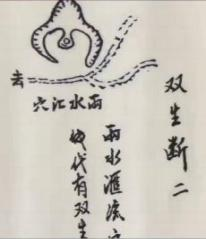 双生断二
雨水汇流
代有双生
去
穴江水雨